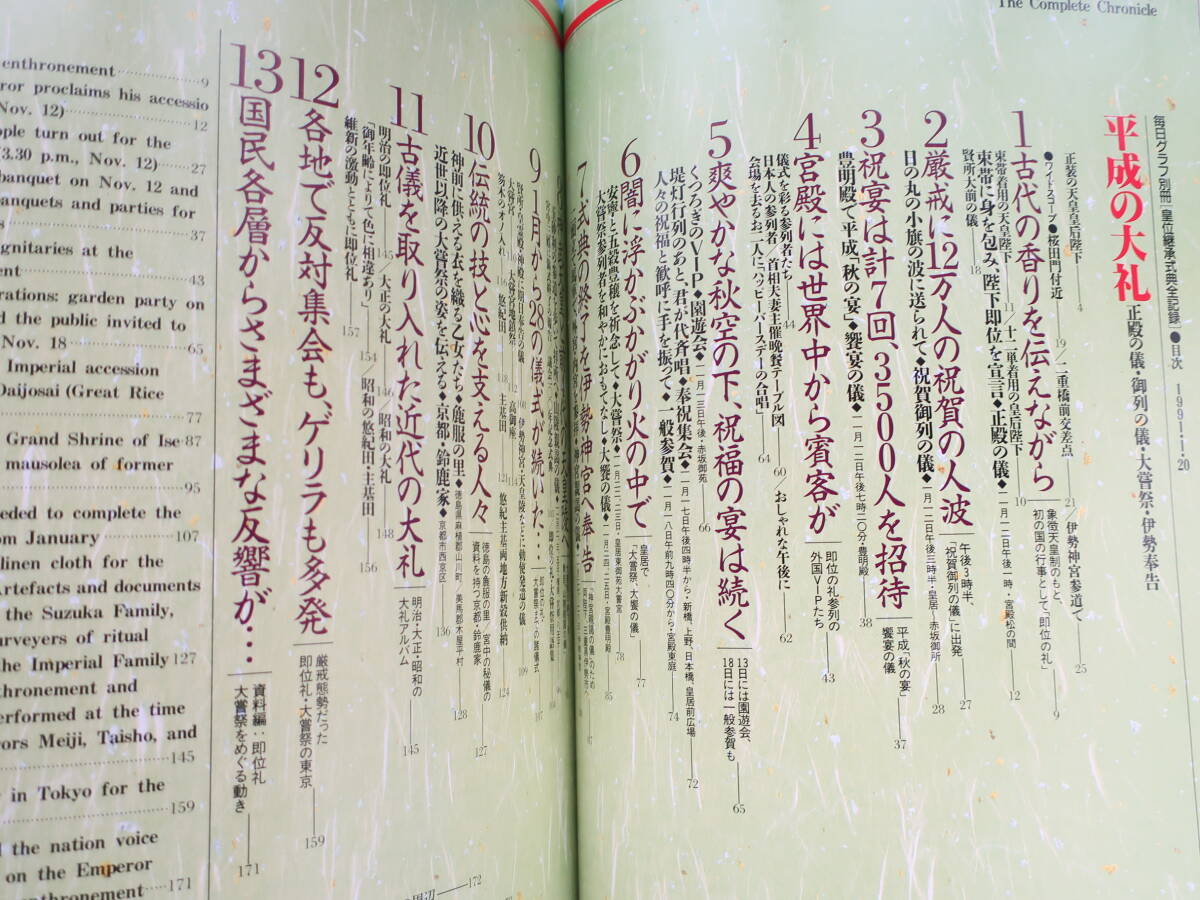 The Complete Chronicle
毎日グラフ別冊「皇位継承式典全記録」●目次 1991・1・20
平成の大礼 正殿の儀・御列の儀・大嘗祭・伊勢奉告
正装の天皇皇后陛下 4
●ワイドスコープ●桜田門付近 19／二重橋前交差点 21／伊勢神宮参道で 25
1 古代の香りを伝えながら
象徴天皇制のもと、
初の国の行事として「即位の礼」 9
東帯着用の天皇陛下 11／十二単着用の皇后陛下 10
束帯に身を包み、陛下即位を宣言◆正殿の儀◆一月一二日午後一時・宮殿松の間 12
賢所大前の儀 18
2 厳戒に12万人の祝賀の人波
午後3時半、
「祝賀御列の儀」に出発 27
日の丸の小旗の波に送られて◆祝賀御列の儀◆一月一二日午後三時半・皇居→赤坂御所 28
3 祝宴は計7回、3500人を招待
平成「秋の宴」
饗宴の儀 37
豊明殿で平成「秋の宴」◆饗宴の儀◆一月一二日午後七時二〇分・豊明殿 38
4 宮殿には世界中から賓客が
即位の礼参列の
外国VIPたち 43
儀式を彩る参列者たち 44
日本人の参列者 60／おしゃれな午後に 62
首相夫妻主催晩餐テーブル図
会場を去るお二人に「ハッピーバースデーの合唱」 64
5 爽やかな秋空の下、祝福の宴は続く
13日には園遊会、
18日には一般参賀も 65
くつろぎのVIP◆園遊会◆一月一三日午後・赤坂御苑 66
堤灯行列のあと「君が代斉唱」◆奉祝集会◆一月一七日午後四時半から・新橋、上野、日本橋、皇居前広場 72
人々の祝福と歓呼に手を振って◆一般参賀◆一月一八日午前九時四〇分から・宮殿東庭 74
6 闇に浮かぶかがり火の中で
皇居で
「大嘗祭、大饗の儀」 77
安寧と五穀豊穣を祈念して◆大嘗祭◆一月二二、二三日・皇居東御苑大嘗宮 78
大嘗祭参列者を和やかにおもてなし◆大饗の儀◆一月二四、二五日・宮殿豊明殿 85
7 式典の終了を伊勢神宮へ奉告
9 1月から28の儀式が続いた…
即位の礼、
大嘗祭までの諸儀式 107
賢所・皇霊殿・神殿に期日奉告の儀 108
伊勢神宮・天皇陵などに勅使発遣の儀 109
大嘗宮 110
大嘗宮地鎮祭 112
高御座 114
斧木のオノ入れ 116
悠紀田 118
主基田 121
悠紀主基両地方新穀供納 124
10 伝統の技と心を支える人々
徳島の麁服の里／宮中の秘儀の
資料を持つ京都・鈴鹿家 127
神前に供える衣を織る乙女たち◆麁服の里◆徳島県麻植郡山川町、美馬郡木屋平村 128
近世以降の大嘗祭の姿を伝える◆京都・鈴鹿家◆京都市西京区 136
11 古儀を取り入れた近代の大礼
明治・大正・昭和の
大礼アルバム 145
明治の即位礼 145／大正の大礼 146
昭和の大礼 148
「御年齢によりて色に相違あり」 154
昭和の悠紀田・主基田 156
維新の激動とともに即位礼 157
12 各地で反対集会も、ゲリラも多発
厳戒態勢だった
即位礼・大嘗祭の東京 159
13 国民各層からさまざまな反響が…
資料編:即位礼
大嘗祭をめぐる動き 171
周辺 172
enthronement 9
ror proclaims his accessio
Nov. 12) 12
ople turn out for the
(3.30 p.m., Nov. 12) 27
banquet on Nov. 12 and
anquets and parties for
s 37
gnitaries at the
ent 43
rations: garden party on
d the public invited to
Nov. 18 65
Imperial accession
Daijosai (Great Rice
77
Grand Shrine of Ise 87
mausolea of former
95
eeded to complete the
om January 107
linen cloth for the
Artefacts and documents
the Suzuka Family,
urveyers of ritual
the Imperial Family 127
thronement and
erformed at the time
ors Meiji, Taisho, and
145
in Tokyo for the
159
the nation voice
on the Emperor
nthronement 171